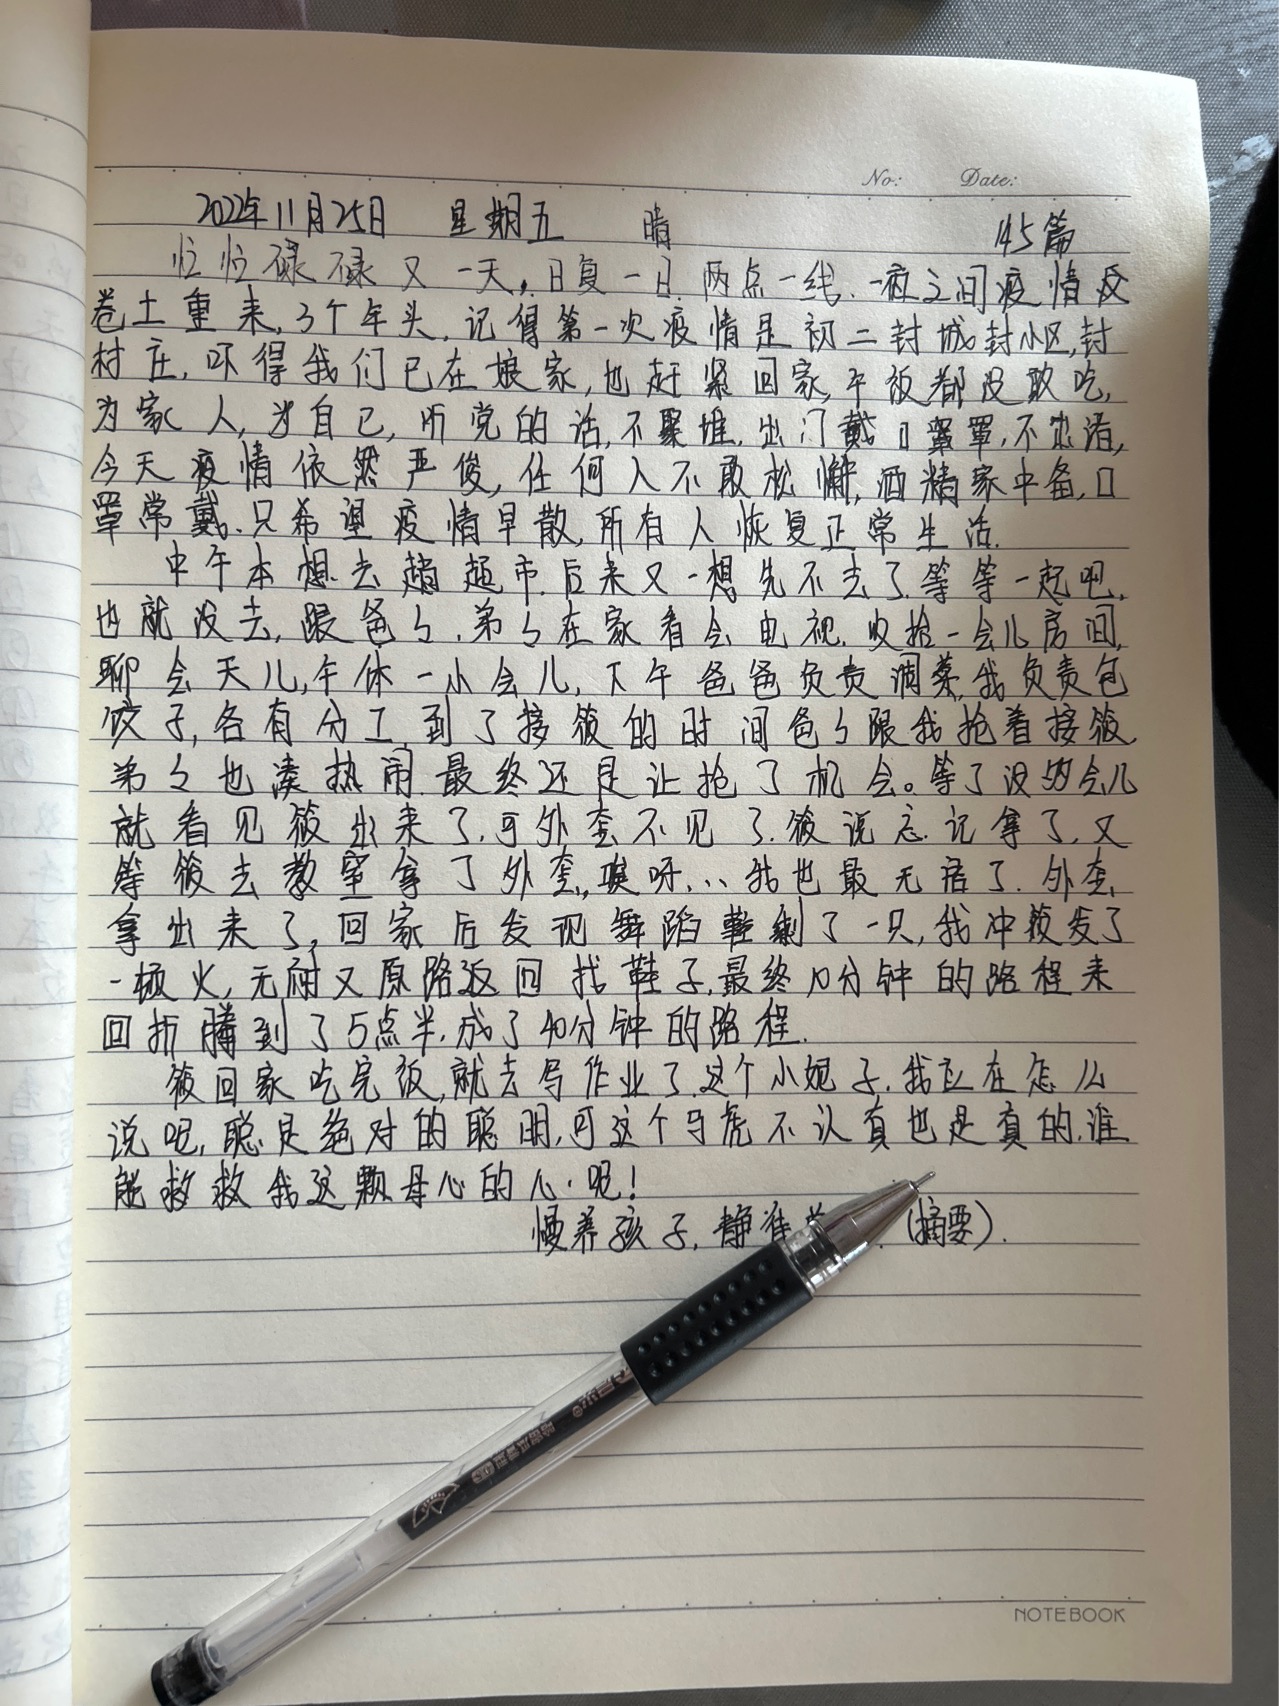 No: Date:
2022年11月25日 星期五 晴 145篇
忙忙碌碌又一天,日复一日.两点一线.一夜之间疫情又
卷土重来,3个年头,记得第一次疫情是初二封城封小区,封
村庄,吓得我们已在娘家,也赶紧回家,午饭都没敢吃,
为家人,为自己,听党的话,不聚堆,出门戴口罩罩,不出洧,
今天疫情依然严俊,任何人不敢松懈,酒精家中备,口
罩常戴.只希望疫情早散,所有人恢复正常生活.
中午本想去趟超市.后来又一想先不去了.等等一起吧.
也就没去,跟爸々.弟々在家看会电视.收拾一会儿房间,
聊会天儿,午休一小会儿,下午爸爸负责调菜,我负责包
饺子,各有分工.到了接筱的时间爸々跟我抢着接筱
弟々也凑热闹.最终还是让抢了机会。等了没多会儿
就看见筱出来了,可外套不见了.筱说忘记拿了,又
等筱去教室拿了外套,唉呀...我也最无语了.外套
拿出来了,回家后发现舞蹈鞋剩了一只,我冲筱发了
一顿火,无耐又原路返回找鞋子,最终10分钟的路程来
回折腾到了5点半.成了40分钟的路程.
筱回家吃完饭,就去写作业了.这个小妮子.我应在怎么
说呢,聪是绝对的聪明,可这个马虎不认真也是真的.谁
能救救我这颗母心的心.呢!
慢养孩子,静准 (摘要).
NOTEBOOK